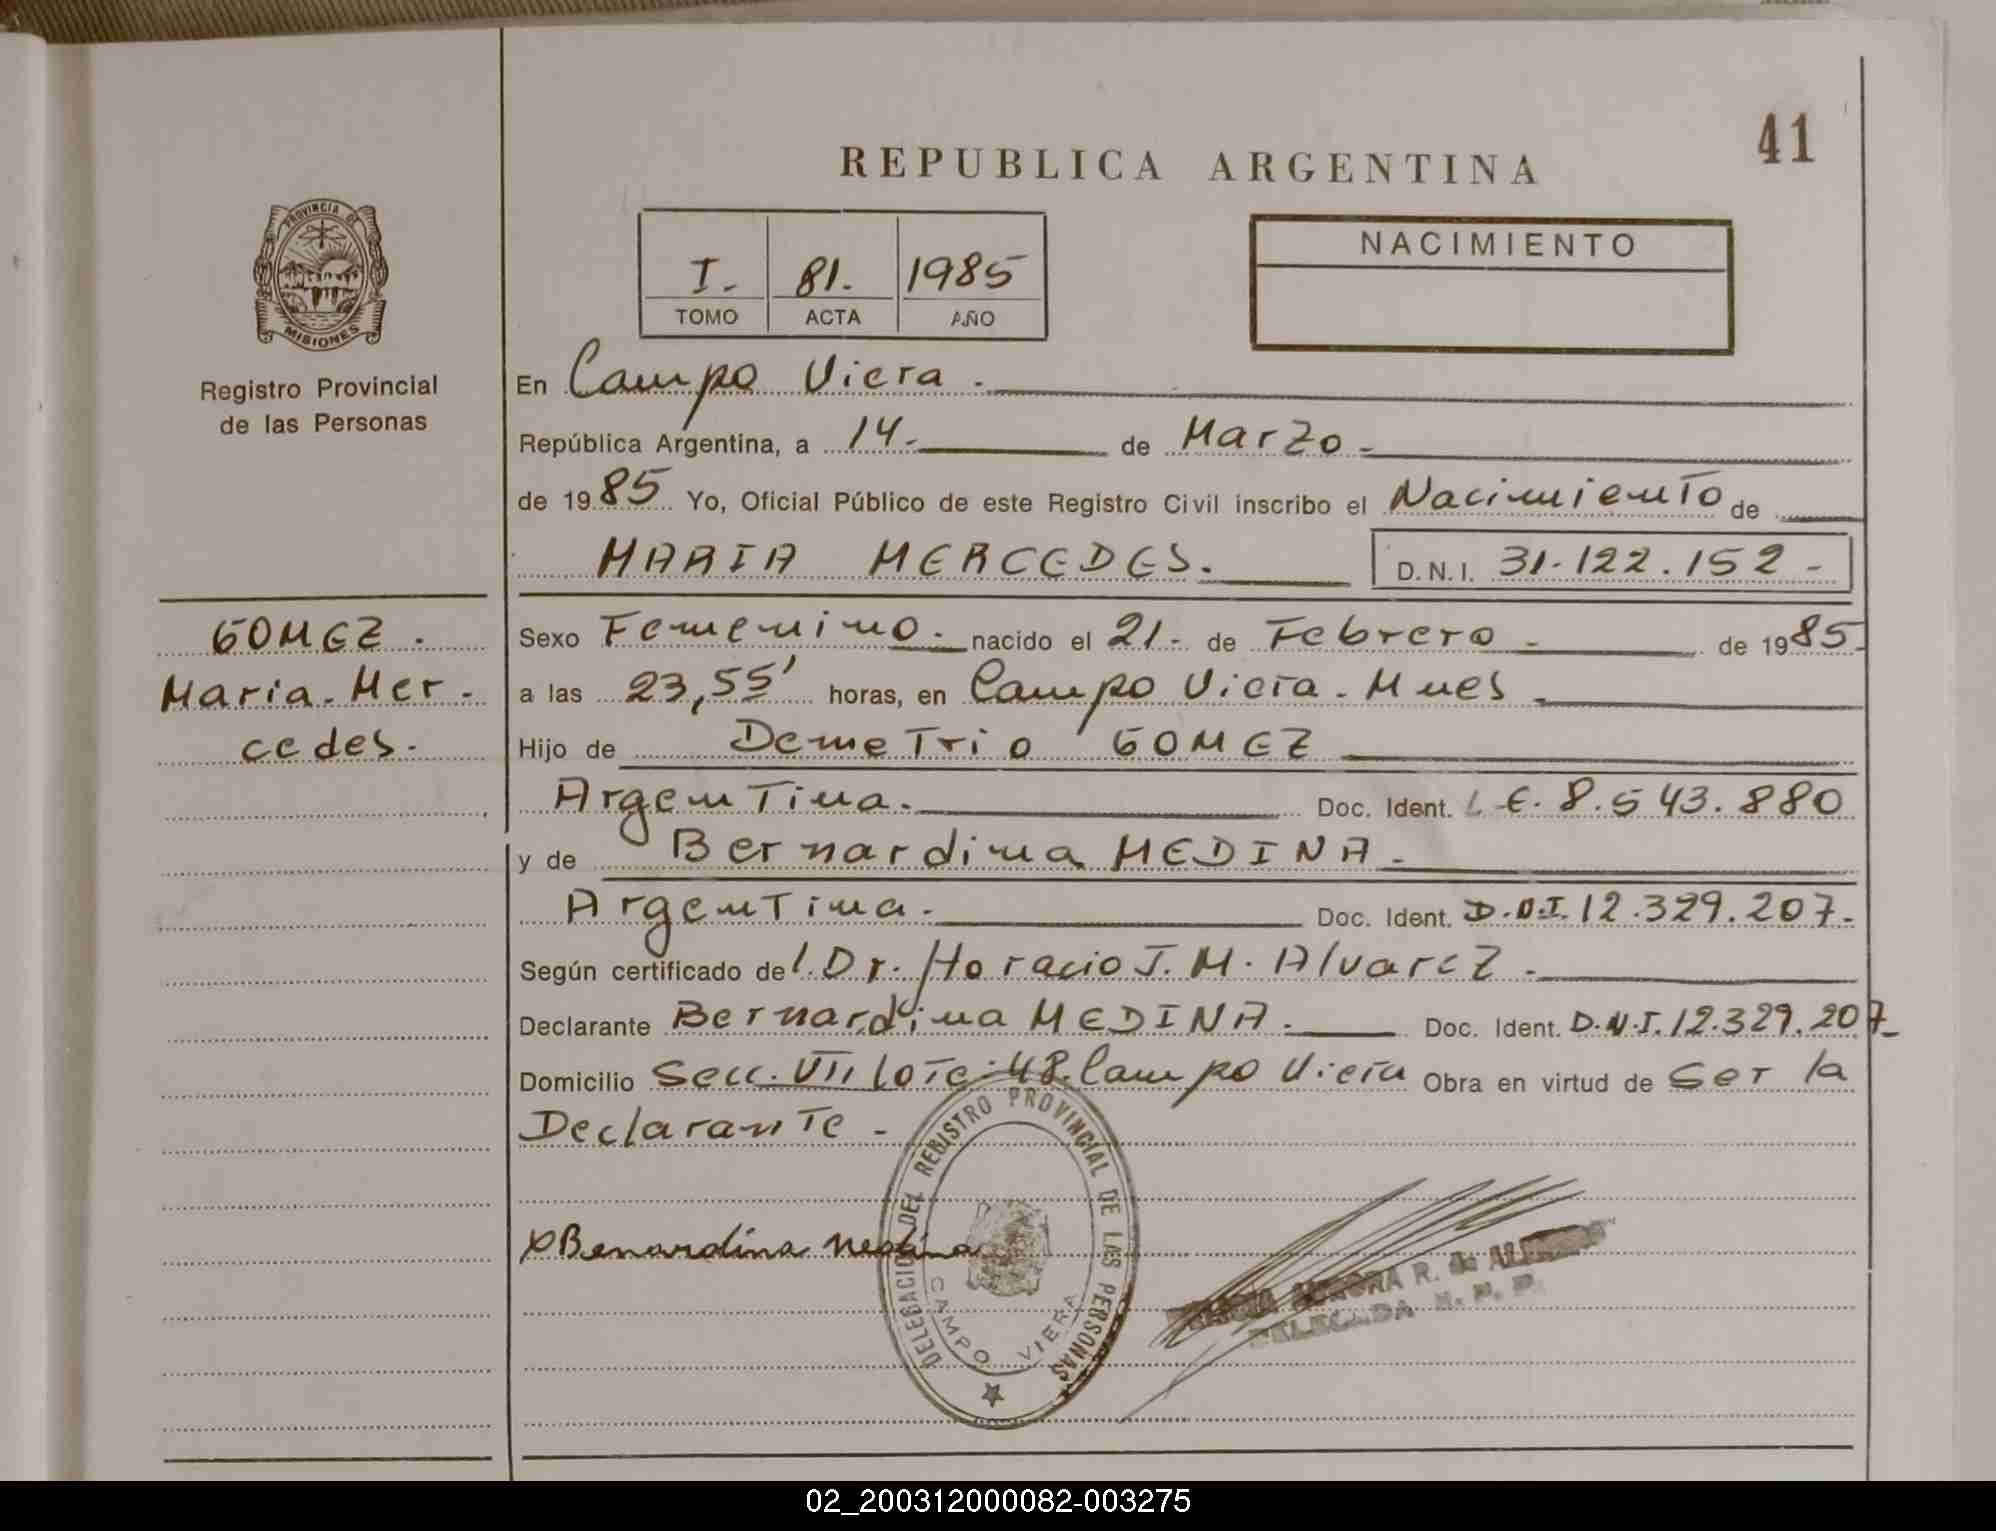 41
REPUBLICA ARGENTINA
PROVINCIA DE
MISIONES
Registro Provincial
de las Personas
I. 81. 1985
TOMO ACTA AÑO
NACIMIENTO
En Campo Viera.
República Argentina, a 14. de Marzo
de 1985 Yo, Oficial Público de este Registro Civil inscribo el Nacimiento de
MARIA MERCEDES. D.N.I. 31.122.152-
GOMEZ.
Maria Mer-
cedes.
Sexo Femenino. nacido el 21. de Febrero de 1985
a las 23,55' horas, en Campo Viera. Mnes
Hijo de Demetrio GOMEZ
Argentina. Doc. Ident. L.E. 8.543.880
y de Bernardina MEDINA-
Argentina. Doc. Ident. D.N.I. 12.329.207-
Según certificado del Dr. Horacio J. M. Alvarez.
Declarante Bernardina MEDINA. Doc. Ident. D.N.I. 12.329.207
Domicilio Secc. VII Lote: 48. Campo Viera Obra en virtud de ser la
Declarante-
Benardina Medina
DELEGACION DEL REGISTRO PROVINCIAL DE LAS PERSONAS
CAMPO VIERA
AURORA R. de
DELEGADA R. P. P.
02_200312000082-003275